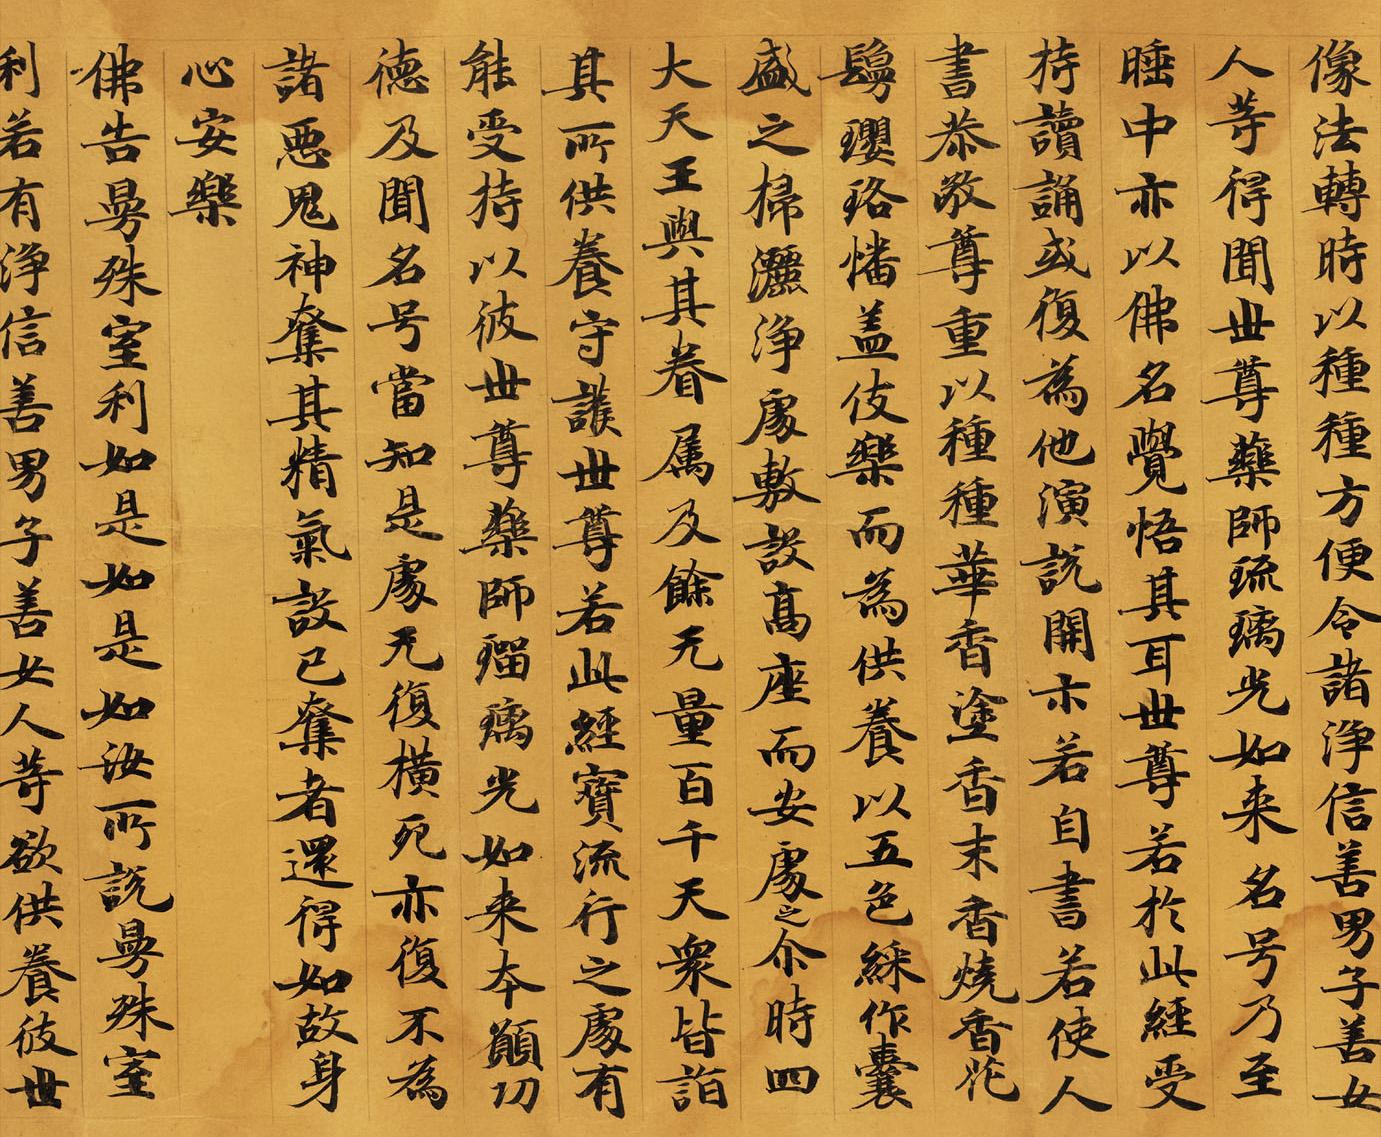 像法轉時以種種方便令諸淨信善男子善女
人等得聞世尊藥師琉璃光如来名号乃至
睡中亦以佛名覺悟其耳世尊若於此經受
持讀誦或復為他演說開示若自書若使人
書恭敬尊重以種種華香塗香末香燒香花
鬘瓔珞幡盖伎樂而為供養以五色綵作囊
盛之掃灑淨處敷設髙座而安處之尒時四
大天王與其眷属及餘无量百千天衆皆詣
其所供養守護世尊若此經寶流行之處有
能受持以彼世尊藥師瑠璃光如来夲願功
德及聞名号當知是處无復橫死亦復不為
諸悪鬼神奪其精氣設已奪者還得如故身
心安樂
佛告曼殊室利如是如是如汝所說曼殊室
利若有淨信善男子善女人等欲供養彼世